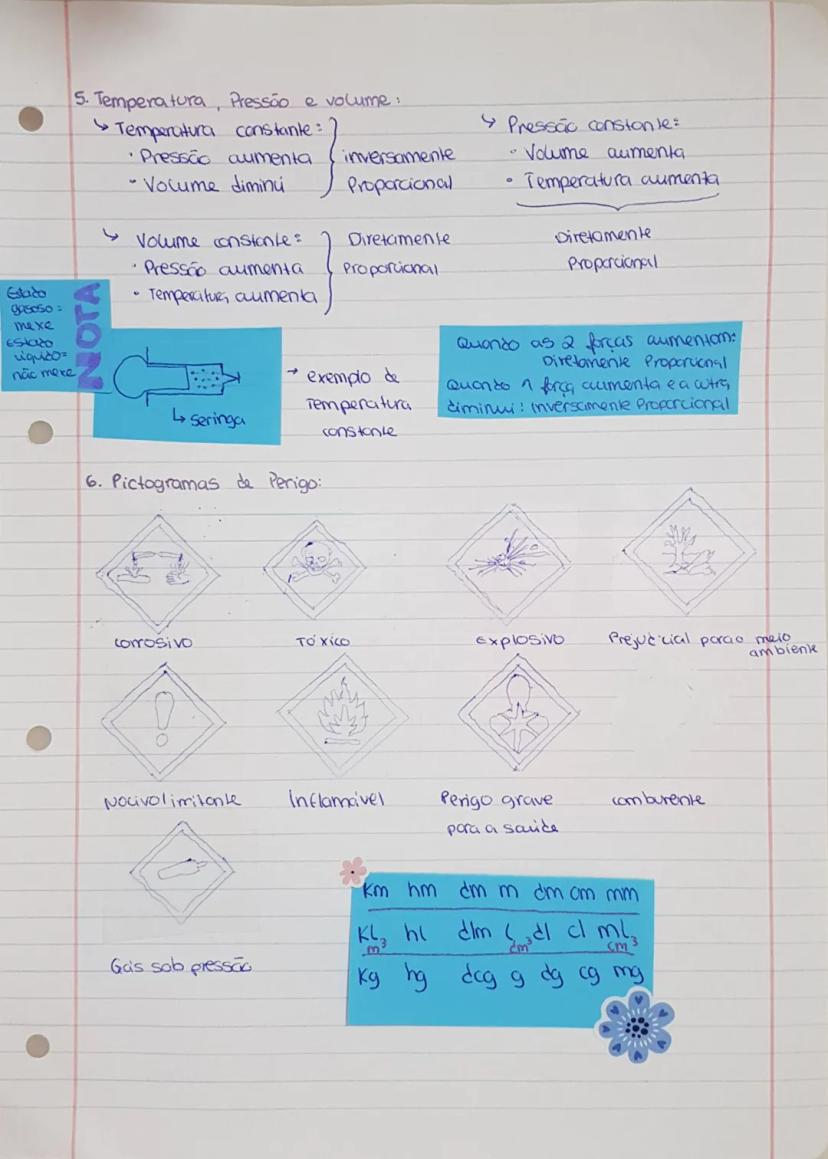 5. Temperatura, Pressão e volume:
↳ Temperatura constante:
· Pressão aumenta
· Volume diminui
inversamente
Proporcional
↳ Pressão constante:
· Volume aumenta
· Temperatura aumenta
Diretamente
Proporcional
↳ Volume constante:
· Pressão aumenta
· Temperatura aumenta
Diretamente
Proporcional
NOTA
Estado
gasoso:
mexe
Estado
líquido:
não mexe
↳ seringa
→ exemplo de
Temperatura
constante
Quando as 2 forças aumentam:
Diretamente Proporcional
Quando 1 força aumenta e a outra
diminui: inversamente Proporcional
6. Pictogramas de Perigo:
corrosivo
Tóxico
Explosivo
Prejudicial para o meio
ambiente
Nocivo/irritante
Inflamável
Perigo grave
para a saúde
comburente
Gás sob pressão
Km hm dm m dm cm mm
Kl hl dlm l dl cl ml
m³ dm³ cm³
Kg hg dcg g dg cg mg